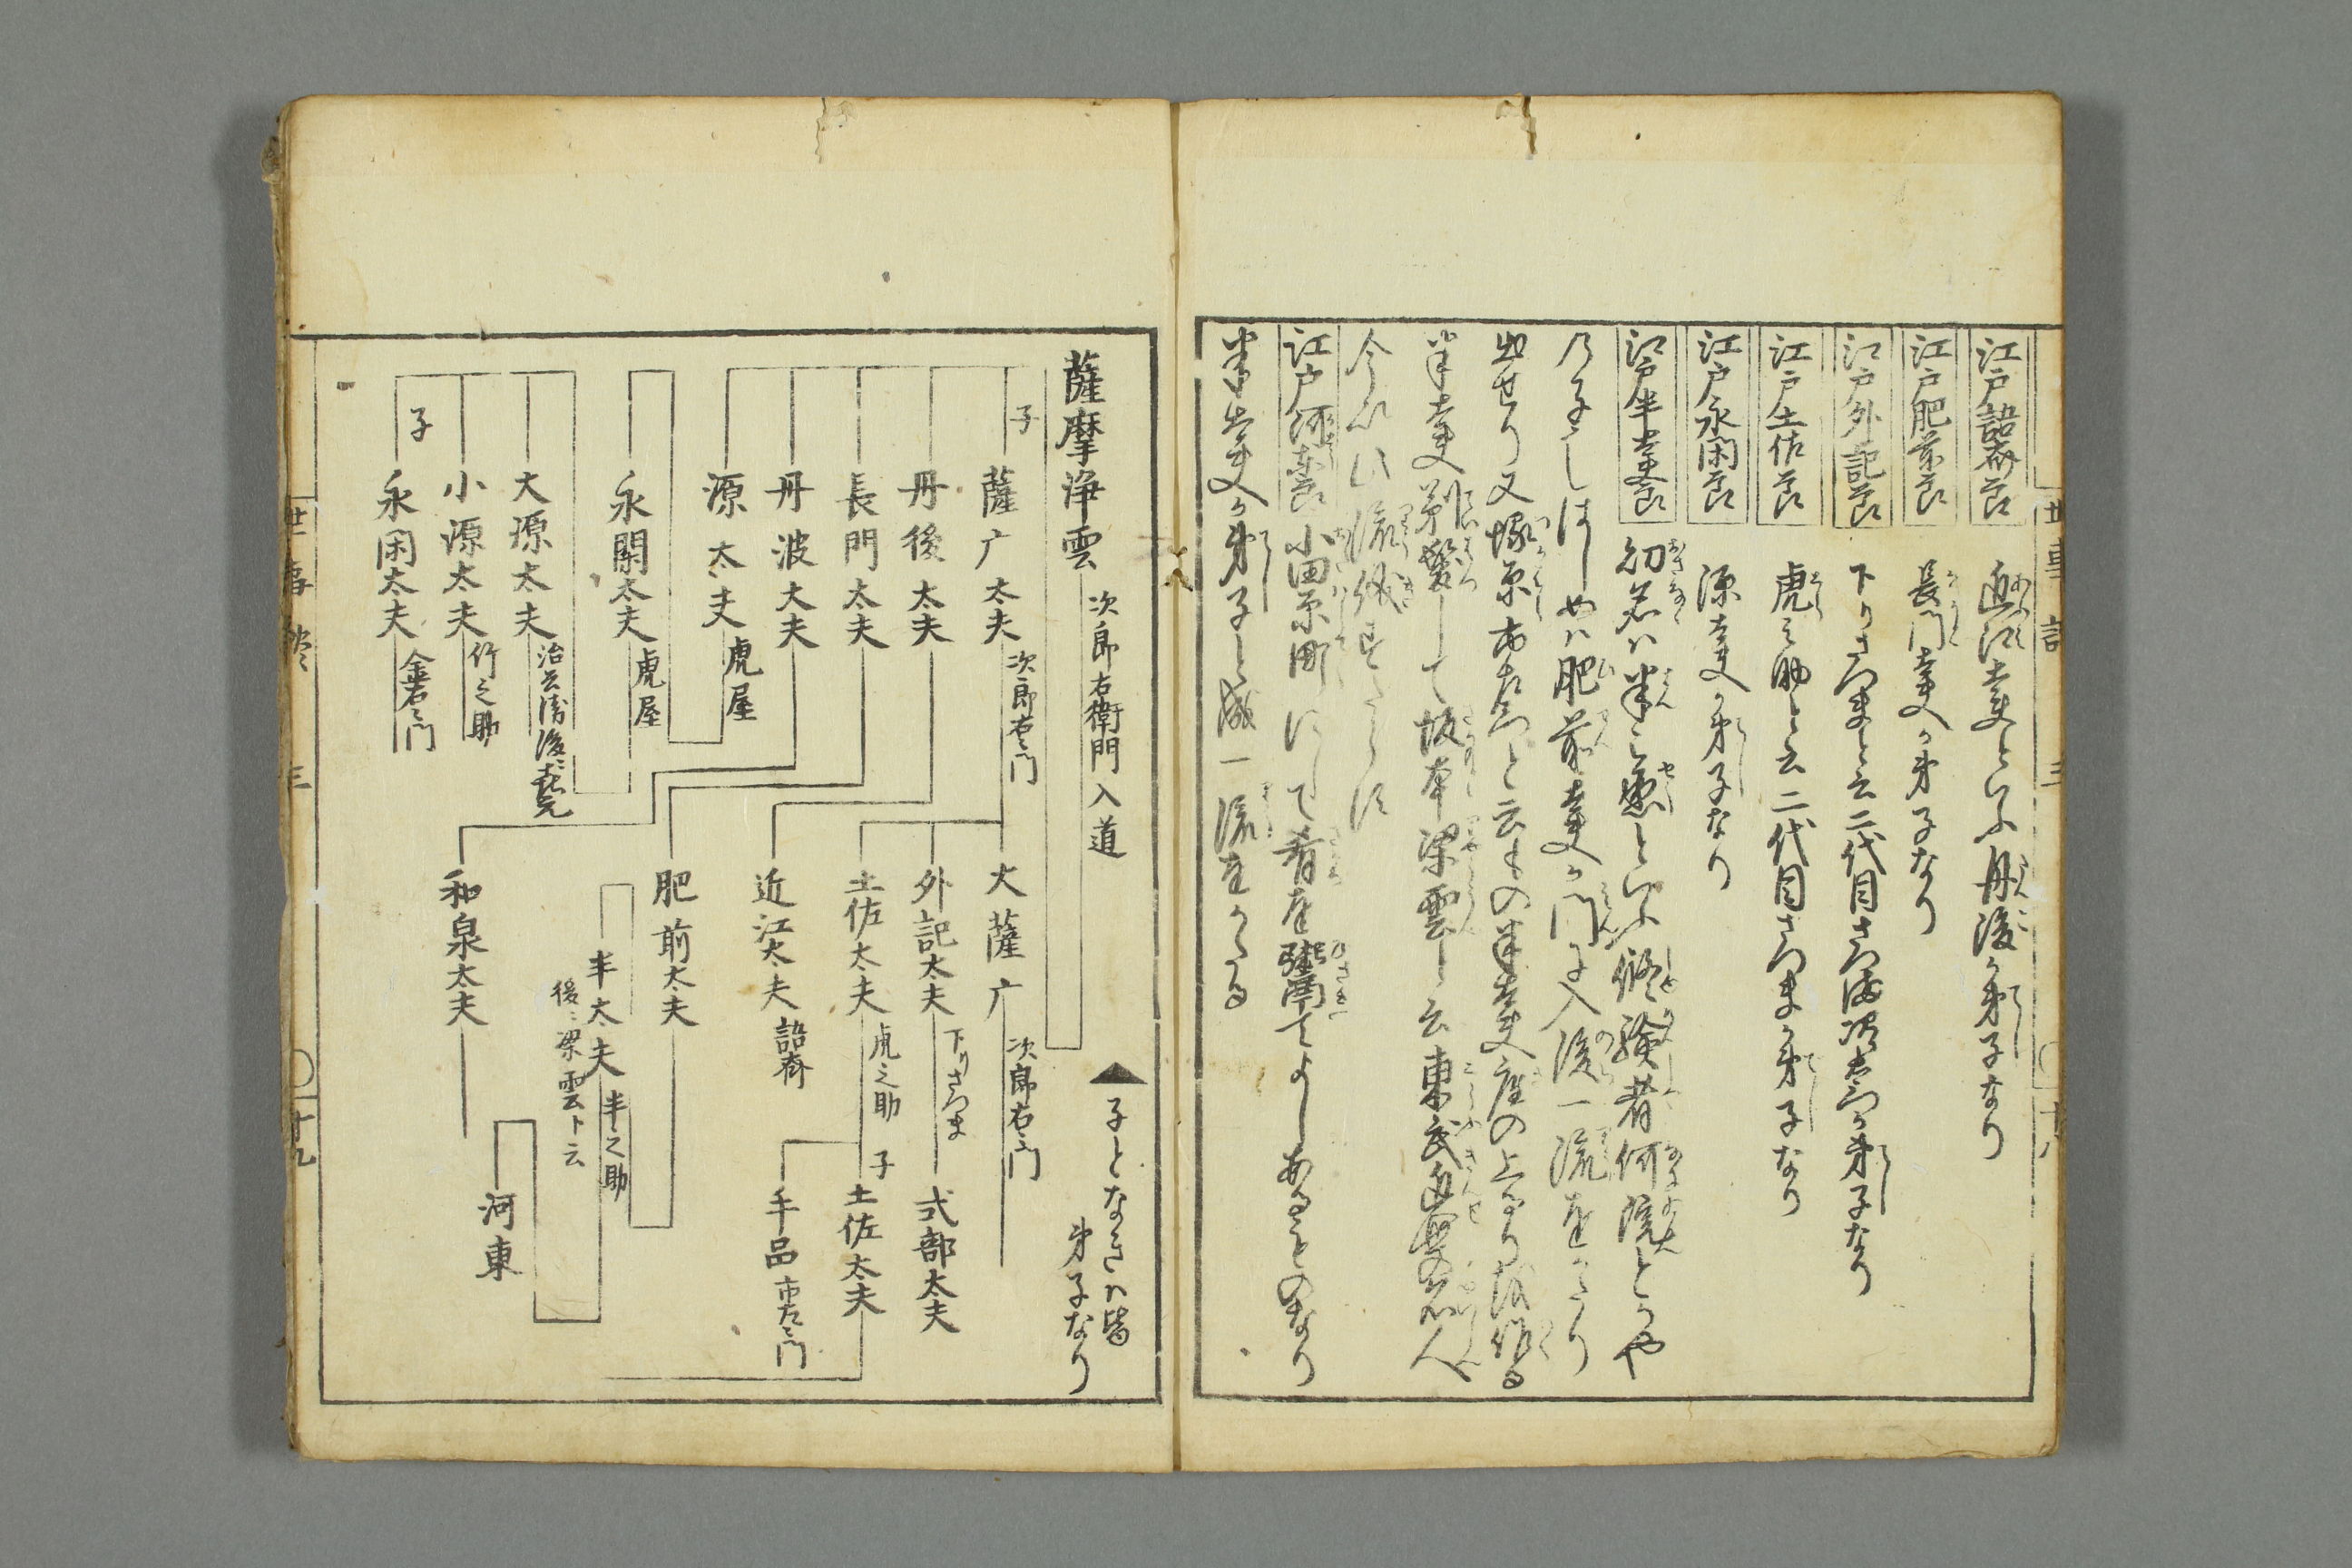 江戸語斎節 近江太夫といふ丹後が弟子なり
江戸肥前節 長門太夫が弟子なり
江戸外記節 下りさつまと云二代目さつま次郎右衛門が弟子なり
江戸土佐節 虎之助と云二代目さつまが弟子なり
江戸永閑節 源太夫が弟子なり
江戸半太夫節 幼名は半之丞といふ修験者何院とかや
の子也しはしめハ肥前太夫が門に入後一流をかたり
出せり又塚原市左衛門と云もの半太夫座の上るりを作る
半太夫剃髪して坂本梁雲と云東武近世の名人
今以此流儀
江戸河東節 小田原町にして肴座鬻てよしあるものなり
半太夫が弟子と成一流をかたる
薩摩浄雲 次郎右衛門入道
▲子となきハ皆
弟子なり
子 薩广太夫 次郎右衛門
丹後太夫
長門太夫
丹波太夫
源太夫 虎屋
永閑太夫 虎屋
大源太夫
小源太夫 竹之助
子 永閑太夫 金右衛門
大薩广 次郎右衛門
外記太夫 下りさつま
式部太夫
土佐太夫 虎之助
子 土佐太夫
手品 市左衛門
近江太夫 語斎
肥前太夫
半太夫 半之助
後ニ梁雲ト云
和泉太夫
河東
世事談 三 十九